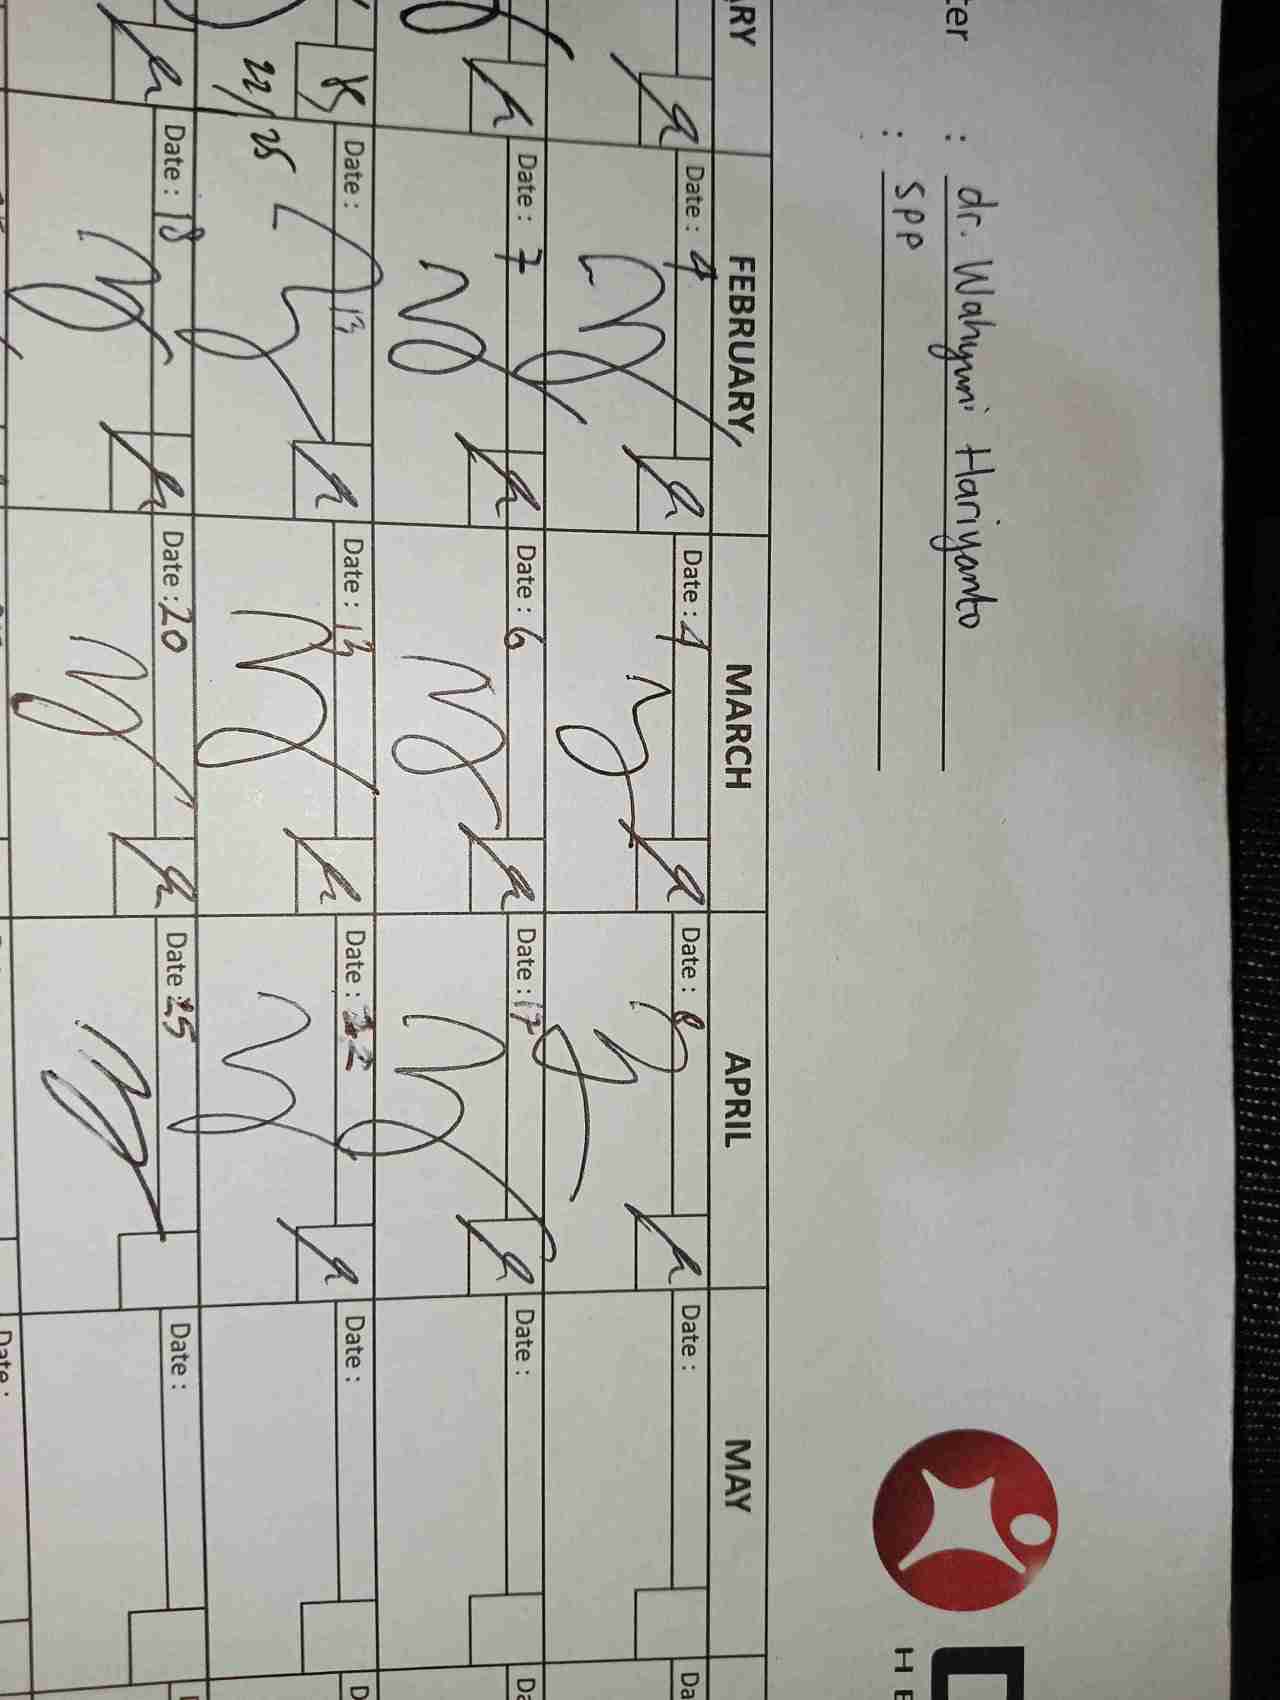 ter : dr. Wahyuni Hariyanto
: SPP
HE
ARY FEBRUARY, MARCH APRIL MAY
Date : 4 Date : 4 Date : 8 Date : Da
Date : 7 Date : 6 Date : 17 Date : Da
Date : 13 Date : 13 Date : 22 Date : D
22/25
Date : 18 Date : 20 Date : 25 Date :
Date :